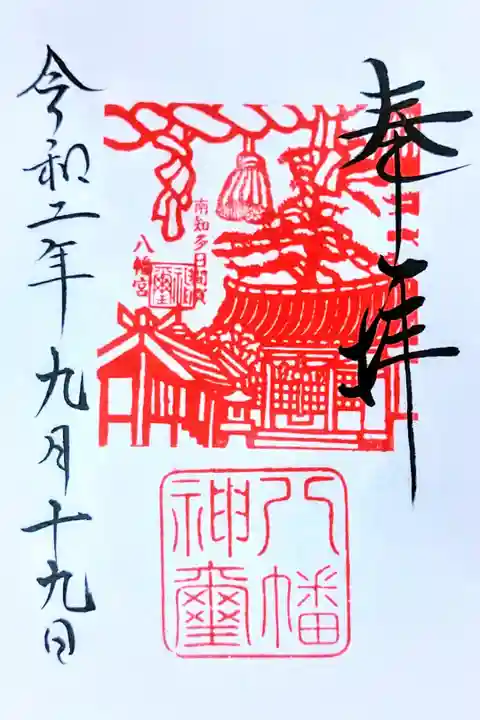 奉拝
南知多日間賀
八幡宮
神璽
八幡
神璽
令和二年九月十九日